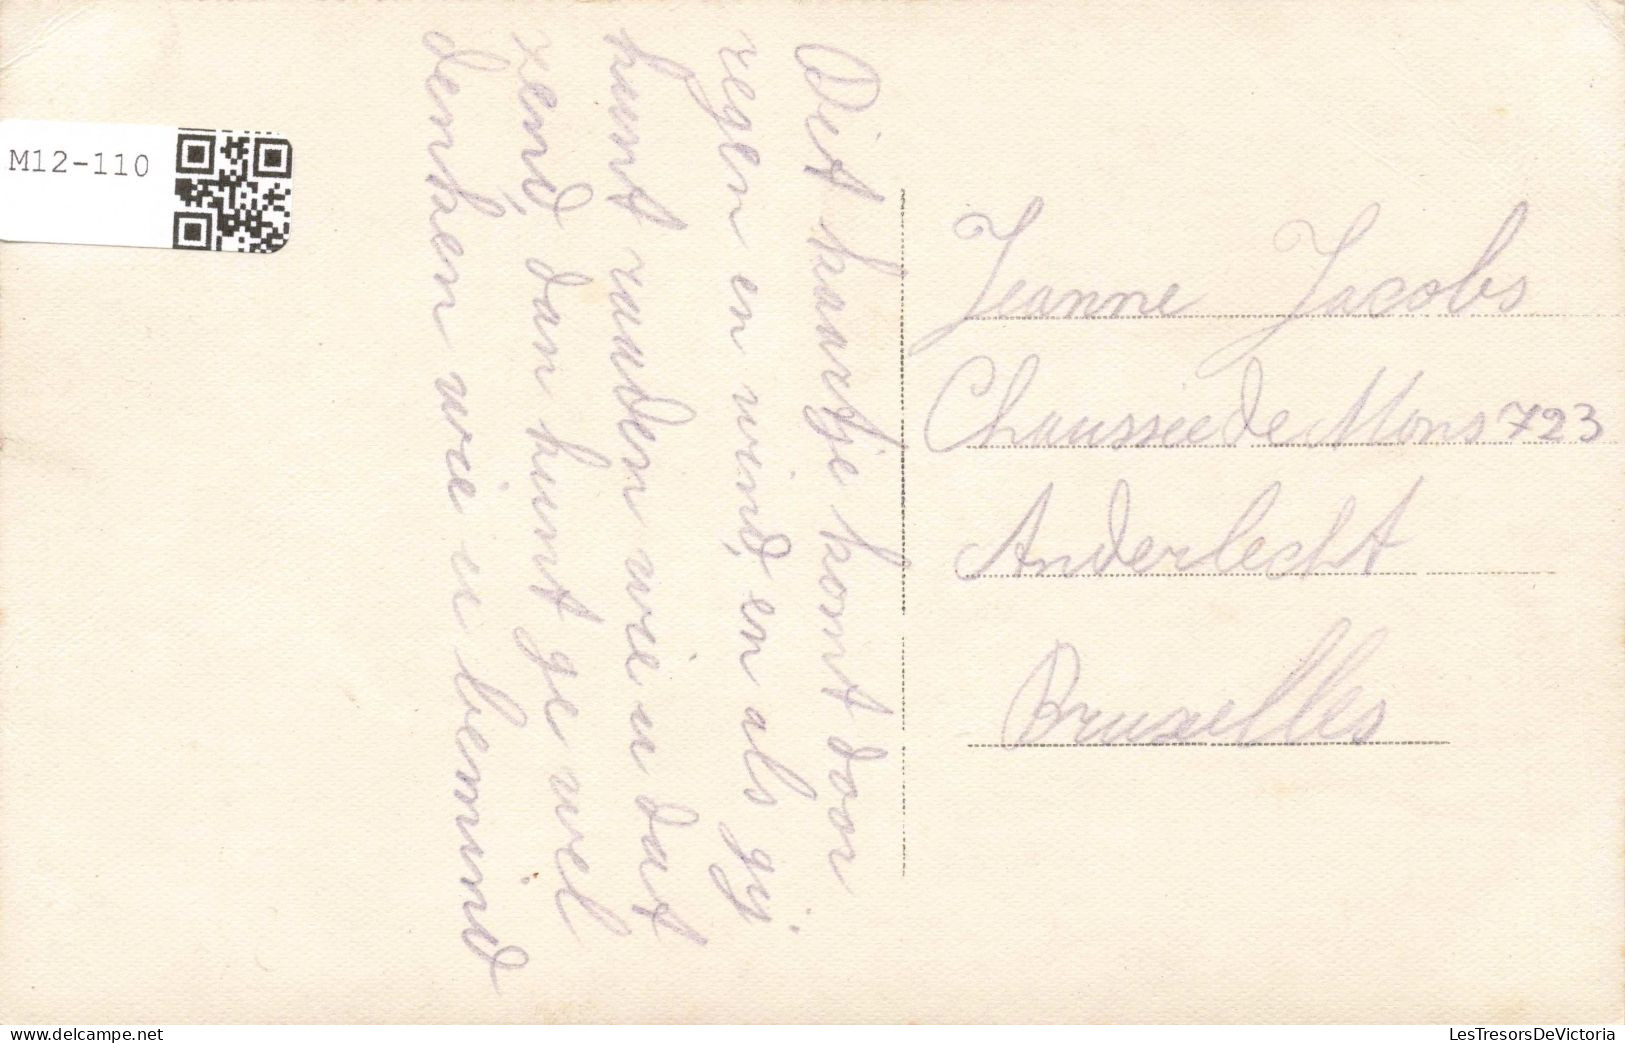 M12-110
Dit kaartje komt door
regen en wind, en als gij
kunt raaden wie u dat
zend, dan kunt ge wel
denken wie u bemind
Jeanne Jacobs
Chaussée de Mons 723
Anderlecht
Bruxelles
LesTresorsDeVictoria